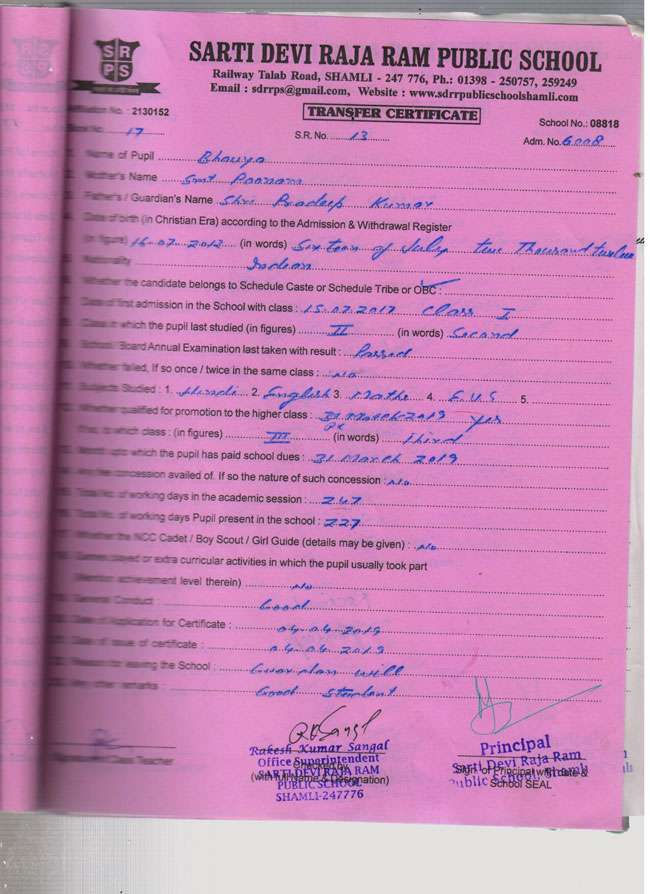 SRPS
SARTI DEVI RAJA RAM PUBLIC SCHOOL
Railway Talab Road, SHAMLI - 247 776, Ph.: 01398 - 250757, 259249
Email : sdrrps@gmail.com, Website : www.sdrrpublicschoolshamli.com
TRANSFER CERTIFICATE
Affiliation No. : 2130152
School No.: 08818
Book No. 17
S.R. No. 13
Adm. No. 6008
1. Name of Pupil
2. Mother's Name Smt Poonam
3. Father's / Guardian's Name Shri Pradeep Kumar
4. Date of birth (in Christian Era) according to the Admission & Withdrawal Register
(in figure) 16-07-2012 (in words) Sixteen of July two Thousand twelve
5. Nationality Indian
6. Whether the candidate belongs to Schedule Caste or Schedule Tribe or OBC :
7. Date of first admission in the School with class : 15-07-2017 Class I
8. Class in which the pupil last studied (in figures) II (in words) Second
9. School / Board Annual Examination last taken with result : Passed
10. Whether failed, If so once / twice in the same class : No
11. Subjects Studied : 1. Hindi 2. English 3. Maths 4. E.V.S 5.
12. Whether qualified for promotion to the higher class : 31 March 2019 yes
If so, to which class : (in figures) III (in words) third
13. Month upto which the pupil has paid school dues : 31 March 2019
14. Any fee concession availed of. If so the nature of such concession : No
15. Total No. of working days in the academic session : 247
16. Total No. of working days Pupil present in the school : 227
17. Whether the NCC Cadet / Boy Scout / Girl Guide (details may be given) : No
18. Games played or extra curricular activities in which the pupil usually took part
(Mention achievement level therein) No
19. General Conduct : Good
20. Date of Application for Certificate : 04-04-2019
21. Date of issue of certificate : 04-04-2019
22. Reason for leaving the School : will
23. Any other remarks : Good
Rakesh Kumar Sangal
Office Superintendent
SARTI DEVI RAJA RAM
PUBLIC SCHOOL
SHAMLI-247776
Checked by
(with full Name & Designation)
Principal
Sarti Devi Raja Ram
Public School, Shamli
Sign. of Principal with date &
School SEAL
Teacher